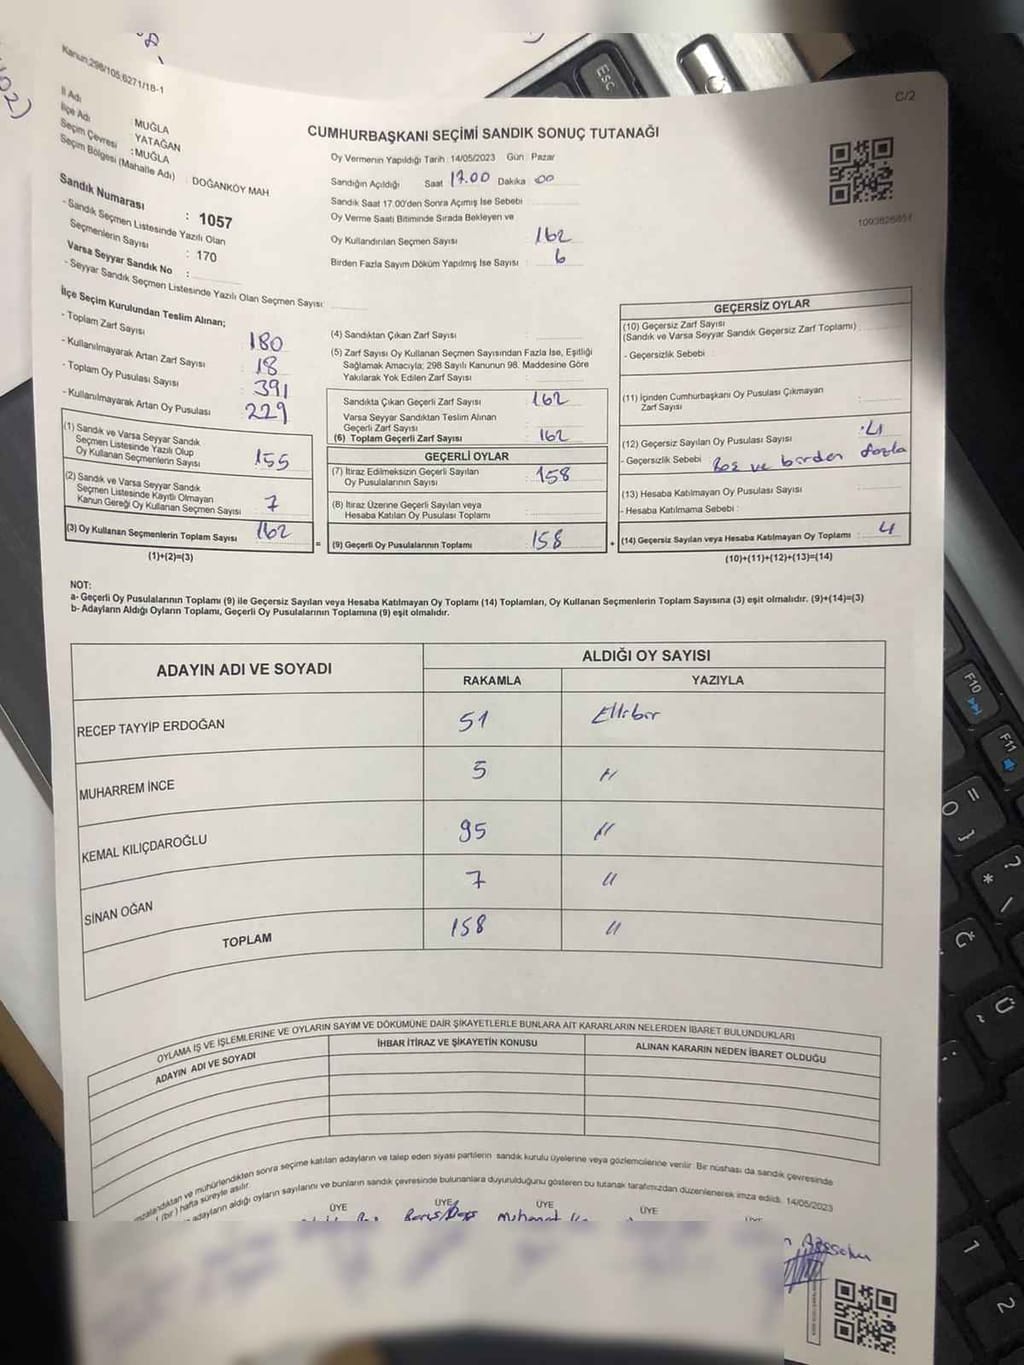 Kanun;298/105,6271/18-1
C/2
İl Adı
: MUĞLA
İlçe Adı
: YATAĞAN
Seçim Çevresi
: MUĞLA
Seçim Bölgesi (Mahalle Adı)
: DOĞANKÖY MAH
Sandık Numarası
: 1057
- Sandık Seçmen Listesinde Yazılı Olan
Seçmenlerin Sayısı
: 170
Varsa Seyyar Sandık No :
- Seyyar Sandık Seçmen Listesinde Yazılı Olan Seçmen Sayısı:
CUMHURBAŞKANI SEÇİMİ SANDIK SONUÇ TUTANAĞI
Oy Vermenin Yapıldığı Tarih : 14/05/2023 Gün : Pazar
Sandığın Açıldığı Saat 17.00 Dakika 00
Sandık Saat 17.00'den Sonra Açımış İse Sebebi
Oy Verme Saati Bitiminde Sırada Bekleyen ve
Oy Kullandırılan Seçmen Sayısı 162
Birden Fazla Sayım Döküm Yapılmış İse Sayısı : 6
İlçe Seçim Kurulundan Teslim Alınan;
- Toplam Zarf Sayısı 180
- Kullanılmayarak Artan Zarf Sayısı 18
- Toplam Oy Pusulası Sayısı 391
- Kullanılmayarak Artan Oy Pusulası 229
(1) Sandık ve Varsa Seyyar Sandık
Seçmen Listesinde Yazılı Olup
Oy Kullanan Seçmenlerin Sayısı 155
(2) Sandık ve Varsa Seyyar Sandık
Seçmen Listesinde Kayıtlı Olmayan
Kanun Gereği Oy Kullanan Seçmen Sayısı 7
(3) Oy Kullanan Seçmenlerin Toplam Sayısı 162
(1)+(2)=(3)
(4) Sandıktan Çıkan Zarf Sayısı
(5) Zarf Sayısı Oy Kullanan Seçmen Sayısından Fazla İse, Eşitliği
Sağlamak Amacıyla; 298 Sayılı Kanunun 98. Maddesine Göre
Yakılarak Yok Edilen Zarf Sayısı
Sandıkta Çıkan Geçerli Zarf Sayısı 162
Varsa Seyyar Sandıktan Teslim Alınan
Geçerli Zarf Sayısı
(6) Toplam Geçerli Zarf Sayısı 162
GEÇERLİ OYLAR
(7) İtiraz Edilmeksizin Geçerli Sayılan
Oy Pusulalarının Sayısı 158
(8) İtiraz Üzerine Geçerli Sayılan veya
Hesaba Katılan Oy Pusulası Toplamı
= (9) Geçerli Oy Pusulalarının Toplamı 158 +
GEÇERSİZ OYLAR
(10) Geçersiz Zarf Sayısı
(Sandık ve Varsa Seyyar Sandık Geçersiz Zarf Toplamı)
- Geçersizlik Sebebi
(11) İçinden Cumhurbaşkanı Oy Pusulası Çıkmayan
Zarf Sayısı
(12) Geçersiz Sayılan Oy Pusulası Sayısı : 4
- Geçersizlik Sebebi Boş ve birden fazla
(13) Hesaba Katılmayan Oy Pusulası Sayısı
- Hesaba Katılmama Sebebi :
(14) Geçersiz Sayılan veya Hesaba Katılmayan Oy Toplamı : 4
(10)+(11)+(12)+(13)=(14)
NOT:
a- Geçerli Oy Pusulalarının Toplamı (9) ile Geçersiz Sayılan veya Hesaba Katılmayan Oy Toplamı (14) Toplamları, Oy Kullanan Seçmenlerin Toplam Sayısına (3) eşit olmalıdır. (9)+(14)=(3)
b- Adayların Aldığı Oyların Toplamı, Geçerli Oy Pusulalarının Toplamına (9) eşit olmalıdır.
ADAYIN ADI VE SOYADI
ALDIĞI OY SAYISI
RAKAMLA YAZIYLA
RECEP TAYYİP ERDOĞAN 51 Ellibir
MUHARREM İNCE 5 "
KEMAL KILIÇDAROĞLU 95 "
SİNAN OĞAN 7 "
TOPLAM 158 "
OYLAMA İŞ VE İŞLEMLERİNE VE OYLARIN SAYIM VE DÖKÜMÜNE DAİR ŞİKAYETLERLE BUNLARA AİT KARARLARIN NELERDEN İBARET BULUNDUKLARI
ADAYIN ADI VE SOYADI
İHBAR İTİRAZ VE ŞİKAYETİN KONUSU
ALINAN KARARIN NEDEN İBARET OLDUĞU
sonra seçime katılan adayların ve talep eden siyasi partilerin sandık kurulu üyelerine veya gözlemcilerine verilir. Bir nüshası da sandık çevresinde
(bir) hafta süreyle asılır.
adayların aldığı oyların sayılarını ve bunların sandık çevresinde bulunanlara duyurulduğunu gösteren bu tutanak tarafımızdan düzenlenerek imza edildi. 14/05/2023
ÜYE ÜYE ÜYE ÜYE
ESC
F10
F11